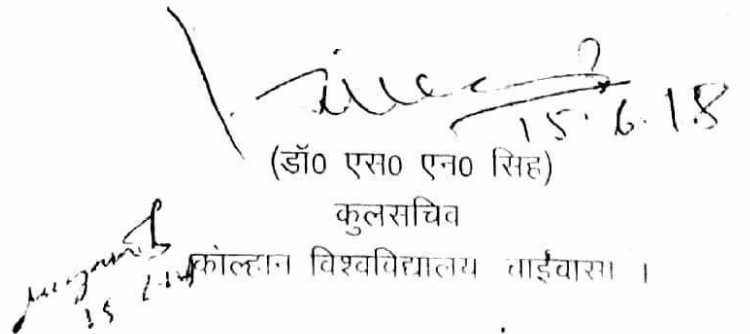 15.6.18
(डॉ0 एस0 एन0 सिंह)
कुलसचिव
कोल्हान विश्वविद्यालय चाईबासा ।